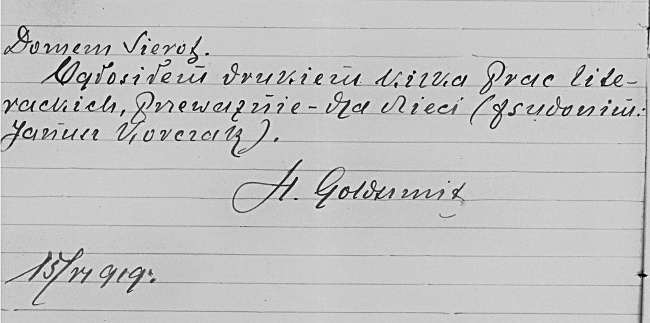 Domem Sierot.
Ogłosiłem drukiem kilka prac lite-
rackich, przeważnie - dla dzieci (psudonim:
Janusz Korczak).
H. Goldszmit
15/VI 919r.